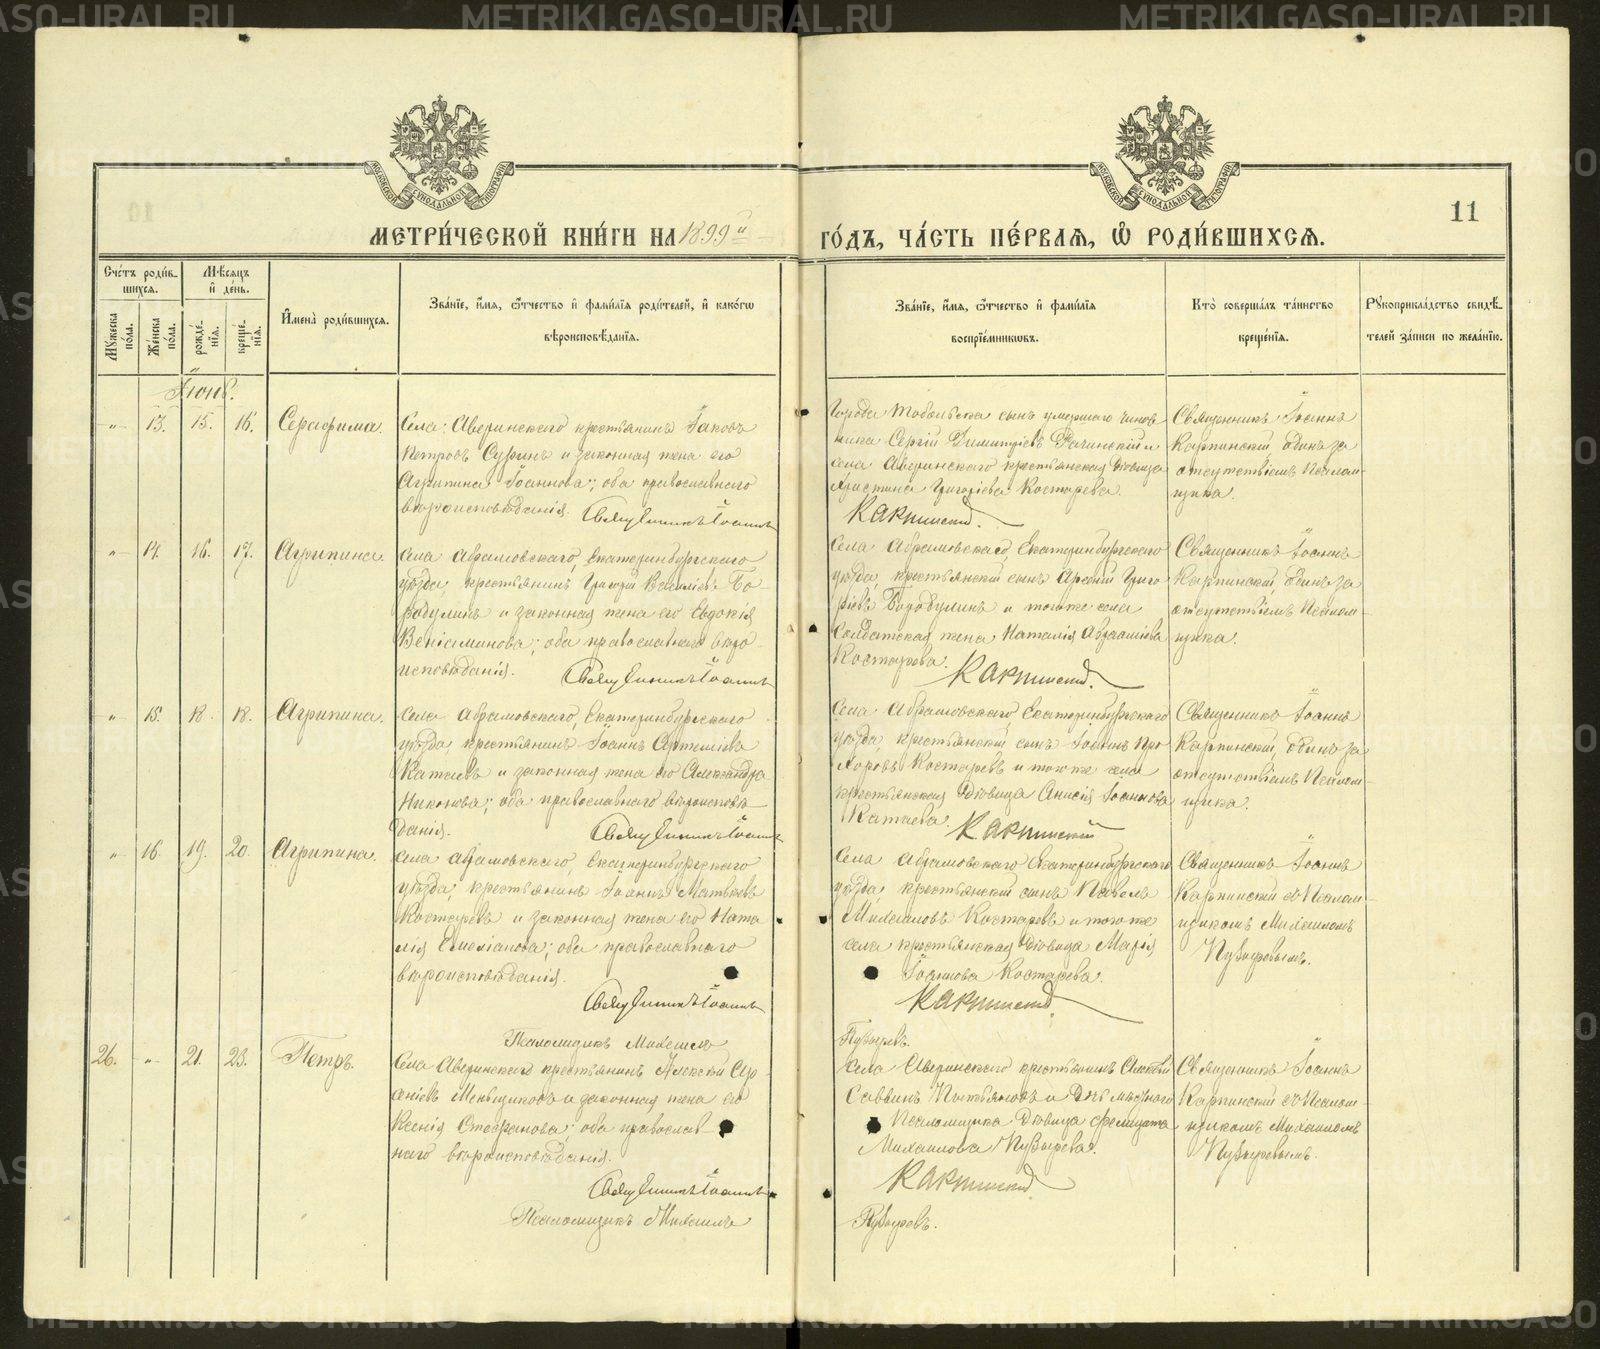 METRIKI.GASO-URAL.RU
МОСКОВСКОЙ СУНОДАЛЬНОЙ ТИПОГРАФІИ
МОСКОВСКОЙ СУНОДАЛЬНОЙ ТИПОГРАФІИ
11
МЕТРИ́ЧЕСКОЙ КНИ́ГИ НА 1899й ГО́ДЪ, ЧА́СТЬ ПЕ́РВАЯ, Ѡ҆ РОДИ́ВШИХСЯ.
Сче́тъ роди́вшихся.
Мѣ́сяцъ и҆ де́нь.
Мꙋ́жеска по́ла.
Же́нска по́ла.
рожде́нїя.
креще́нїя.
И҆мена̀ роди́вшихся.
Зва́нїе, и҆́мя, ѻ҆́тчество и҆ фами́лїя роди́телей, и҆ како́гѡ
вѣроисповѣ́данїя.
Зва́нїе, и҆́мя, ѻ҆́тчество и҆ фами́лїя
воспрїе́мникѡвъ.
Кто̀ соверша́лъ та́инство
креще́нїя.
Рꙋкоприкла́дство свидѣ́-
телей за́писи по жела́нїю.
Іюнь.
" 13. 15. 16. Серафима.
Села Аверинскаго крестьянинъ Іаковъ
Петровъ Суринъ и законная жена его
Агрипина Іоаннова; оба православнаго
вѣроисповѣданія. Священникъ Іоаннъ
Города Тобольска сынъ умершаго чинов-
ника Сергій Димитріевъ и
села Аверинскаго крестьянская дѣвица
Христина Григоріева Костарева.
Карпинскій.
Священникъ Іоаннъ
Карпинскій, одинъ за
отсутствіемъ Псалом-
щика.
" 14. 16. 17. Агрипина.
Села Абрамовскаго, Екатеринбургскаго
уѣзда, крестьянинъ Григорій Василіевъ Бо-
робулинъ и законная жена его Евдокія
Веніаминова; оба православнаго вѣро-
исповѣданія. Священникъ Іоаннъ
Села Абрамовскаго, Екатеринбургскаго
уѣзда, крестьянскій сынъ Арсеній Григо-
ріевъ Боробулинъ и тогоже села
солдатская жена Наталія Аврааміева
Костарева. Карпинскій.
Священникъ Іоаннъ
Карпинскій, одинъ за
отсутствіемъ Псалом-
щика.
" 15. 18. 18. Агрипина.
Села Абрамовскаго, Екатеринбургскаго
уѣзда, крестьянинъ Іоаннъ Артеміевъ
Катаевъ и законная жена его Александра
Никонова; оба православнаго вѣроисповѣ-
данія. Священникъ Іоаннъ
Села Абрамовскаго, Екатеринбургскаго
уѣзда, крестьянскій сынъ Іоаннъ Про-
хоровъ Костаревъ и тогоже села
крестьянская дѣвица Анисія Іоаннова
Катаева. Карпинскій
Священникъ Іоаннъ
Карпинскій, одинъ за
отсутствіемъ Псалом-
щика.
" 16. 19. 20. Агрипина.
Села Абрамовскаго, Екатеринбургскаго
уѣзда, крестьянинъ Іоаннъ Матвѣевъ
Костаревъ и законная жена его Ната-
лія Емеліанова; оба православнаго
вѣроисповѣданія.
Священникъ Іоаннъ
Псаломщикъ Михаилъ
Села Абрамовскаго, Екатеринбургскаго
уѣзда, крестьянскій сынъ Павелъ
Михаиловъ Костаревъ и тогоже
села крестьянская дѣвица Марія
Іоаннова Костарева.
Карпинскій.
Пузыревъ.
Священникъ Іоаннъ
Карпинскій съ Псалом-
щикомъ Михаиломъ
Пузыревымъ.
26. " 21. 23. Петръ.
Села Аверинскаго крестьянинъ Алексій
Меньщиковъ и законная жена его
Ксенія Стефанова; оба православ-
наго вѣроисповѣданія.
Священникъ Іоаннъ
Псаломщикъ Михаилъ
Села Аверинскаго крестьянинъ
Саввинъ и дочь мѣстнаго
Псаломщика дѣвица Фелицата
Михаилова Пузырева.
Карпинскій
Пузыревъ.
Священникъ Іоаннъ
Карпинскій съ Псалом-
щикомъ Михаиломъ
Пузыревымъ.